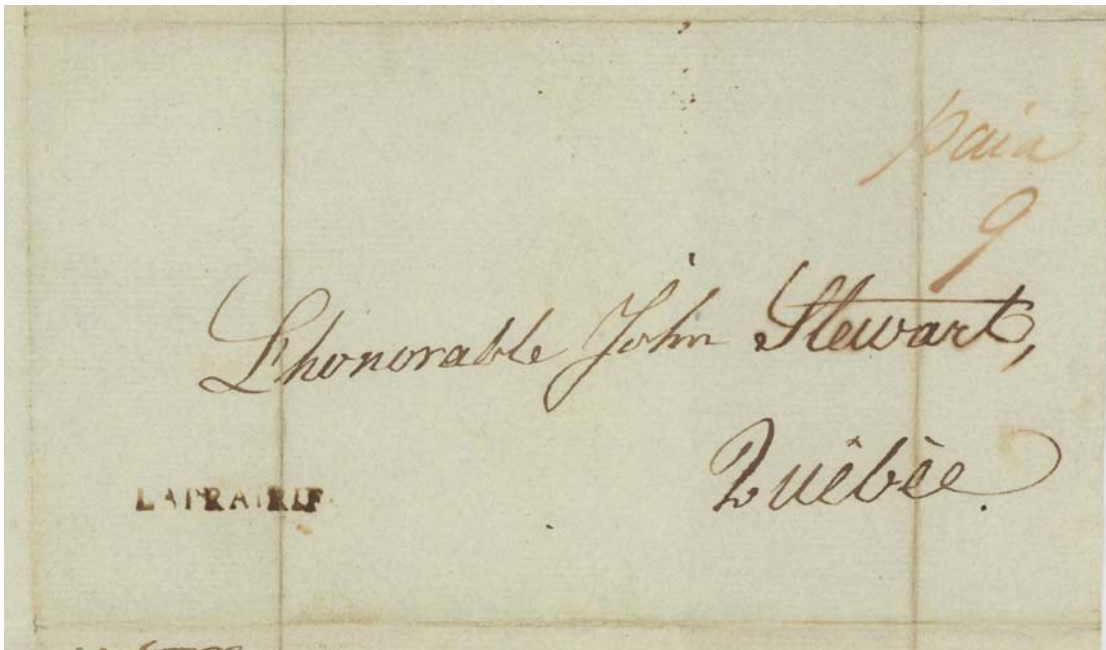 paid
9
L'honorable John Stewart,
Québéc.
LAPRAIRIE